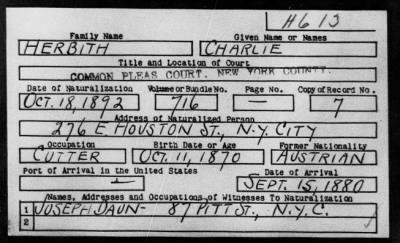 H613
Family Name Given Name or Names
HERBITH CHARLIE
Title and Location of Court
COMMON PLEAS COURT. NEW YORK COUNTY.
Date of Naturalization Volume or Bundle No. Page No. Copy of Record No.
OCT. 18, 1892 716 — 7
Address of Naturalized Person
276 E. HOUSTON ST., N.Y. CITY
Occupation Birth Date or Age Former Nationality
CUTTER OCT. 11, 1870 AUSTRIAN
Port of Arrival in the United States Date of Arrival
— SEPT. 15, 1880
Names, Addresses and Occupations of Witnesses To Naturalization
1 JOSEPH DAUN- 87 PITT ST., N.Y.C.
2